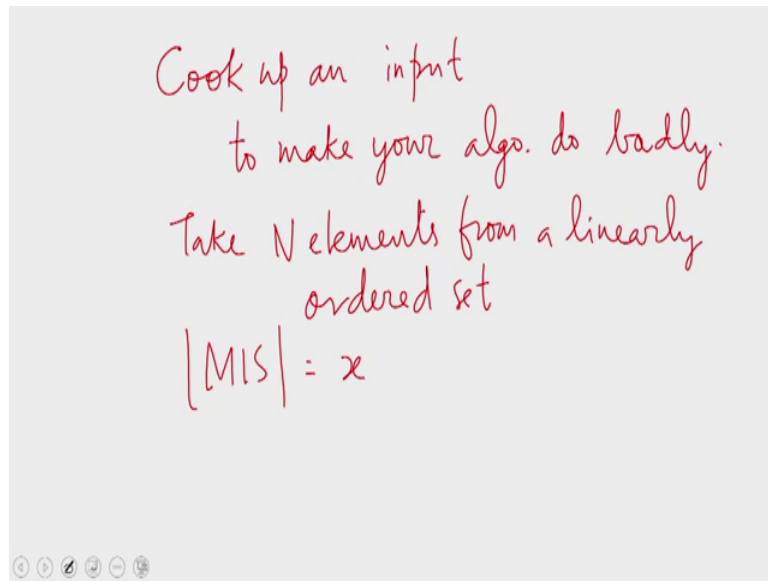 Cook up an input
to make your algo. do badly.
Take N elements from a linearly
ordered set
|MIS| = x